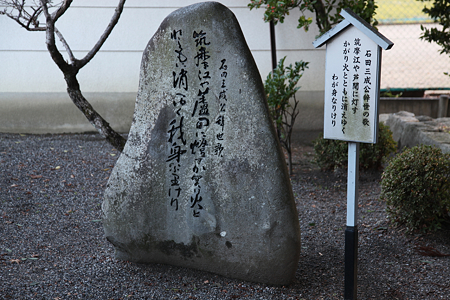 石田三成公辞世の歌
筑摩江や芦間に灯す
かがり火とともに消えゆく
わが身なりけり
石田三成公辞世歌
筑摩江や蘆間に燈すかがり火と
ともに消えゆく我身なりけり